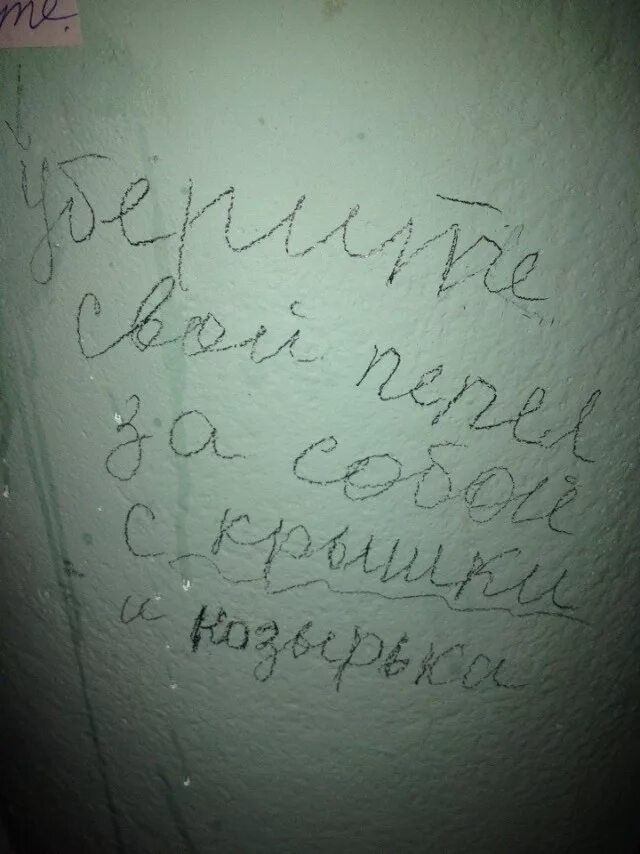 те.
уберите
свой перец
за собой
с крышки
и козырька